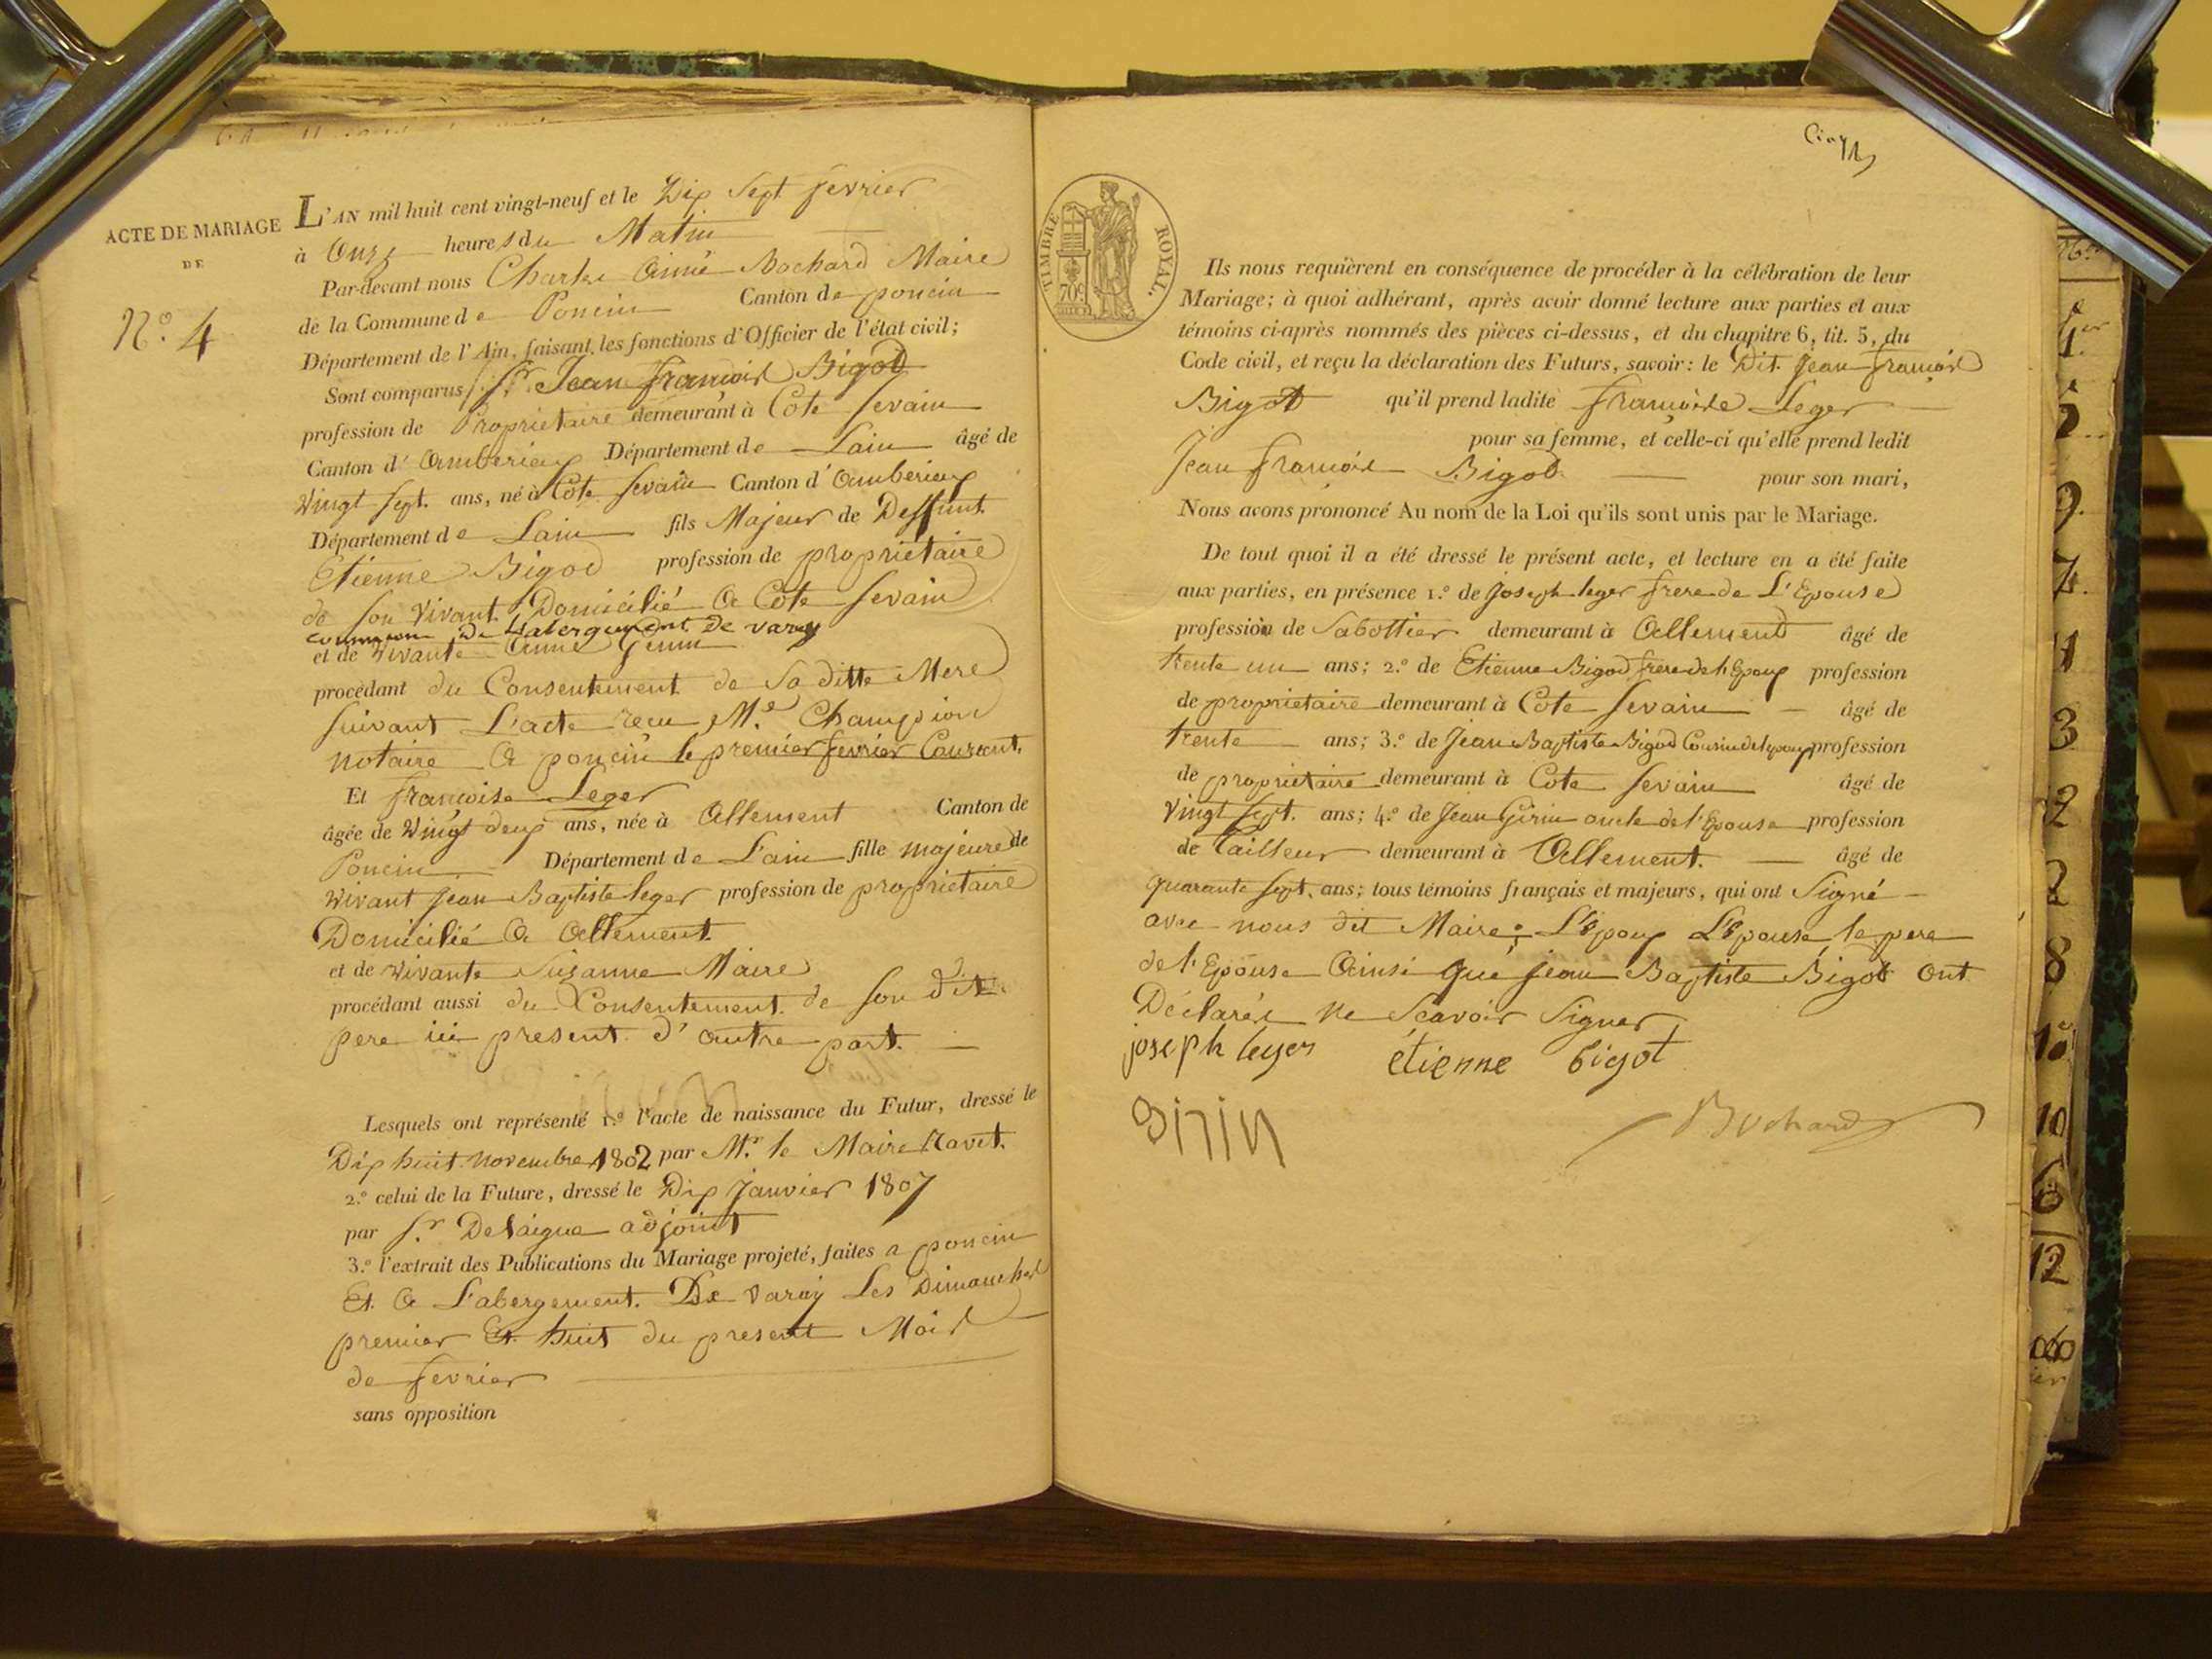 ACTE DE MARIAGE
DE
N.o 4
L'AN mil huit cent vingt-neuf et le Dix Sept fevrier
à Onze heures du Matin
Par-devant nous Charles Aimé Bochard Maire
de la Commune de Poncin Canton de poncin
Département de l'Ain, faisant les fonctions d'Officier de l'état civil;
Sont comparus Sr Jean francois Bigod
profession de Propriétaire demeurant à Cote Sevain
Canton d'Amberieux Département de Lain âgé de
Vingt Sept. ans, né à Cote Sevain Canton d'Amberieux
Département de Lain fils Majeur de Deffunt
Etienne Bigod profession de propriétaire
de Son Vivant Domicilié A Cote Sevain
commune de Labergement de varey
et de Vivante Anne
procédant du Consentement de Sa ditte Mere
Suivant L'acte recu Me Champion
notaire A poncin le premier fevrier Courant.
Et francoise Leger
âgée de Vingt deux ans, née à Allement Canton de
Poncin Département de L'ain fille majeure de
Vivant Jean Baptiste leger profession de propriétaire
Domicilié A Allement
et de Vivante Suzanne Maire
procédant aussi du Consentement de Son dit
pere ici present d'autre part.
Lesquels ont représenté 1.o l'acte de naissance du Futur, dressé le
Dix huit novembre 1802 par Mr. le Maire Ravet.
2.o celui de la Future, dressé le Dix Janvier 1807
par Sr. Delaigue adjoint
3.o l'extrait des Publications du Mariage projeté, faites a poncin
Et A L'abergement De varey Les Dimanches
premier Et huit du present Mois
de fevrier
sans opposition
Cinq
TIMBRE ROYAL.
70c
Ils nous requièrent en conséquence de procéder à la célébration de leur
Mariage; à quoi adhérant, après avoir donné lecture aux parties et aux
témoins ci-après nommés des pièces ci-dessus, et du chapitre 6, tit. 5, du
Code civil, et reçu la déclaration des Futurs, savoir: le Dit Jean francois
Bigod qu'il prend ladite francoise Leger
pour sa femme, et celle-ci qu'elle prend ledit
Jean francois Bigod pour son mari,
Nous avons prononcé Au nom de la Loi qu'ils sont unis par le Mariage.
De tout quoi il a été dressé le présent acte, et lecture en a été faite
aux parties, en présence 1.o de Joseph leger frere de L'Epouse
profession de Sabottier demeurant à Allement âgé de
trente un ans; 2.o de Etienne Bigod frere de l'Epoux profession
de propriétaire demeurant à Cote Sevain âgé de
trente ans; 3.o de Jean Baptiste Bigod Cousin de l'epoux profession
de propriétaire demeurant à Cote Sevain âgé de
Vingt Sept. ans; 4.o de Jean Girin oncle de l'Epouse profession
de tailleur demeurant à Allement. âgé de
quarante Sept. ans; tous témoins français et majeurs, qui ont Signé
avec nous dit Maire; L'Epoux L'Epouse le pere
de l'Epouse Ainsi que jean Baptiste Bigod ont
Déclarés ne Scavoir Signer
joseph leger étienne bigot
girin Bochard